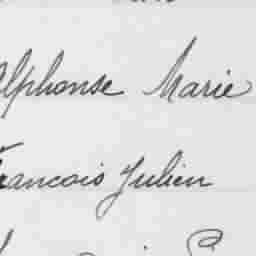 Alphonse Marie
Francois Julien